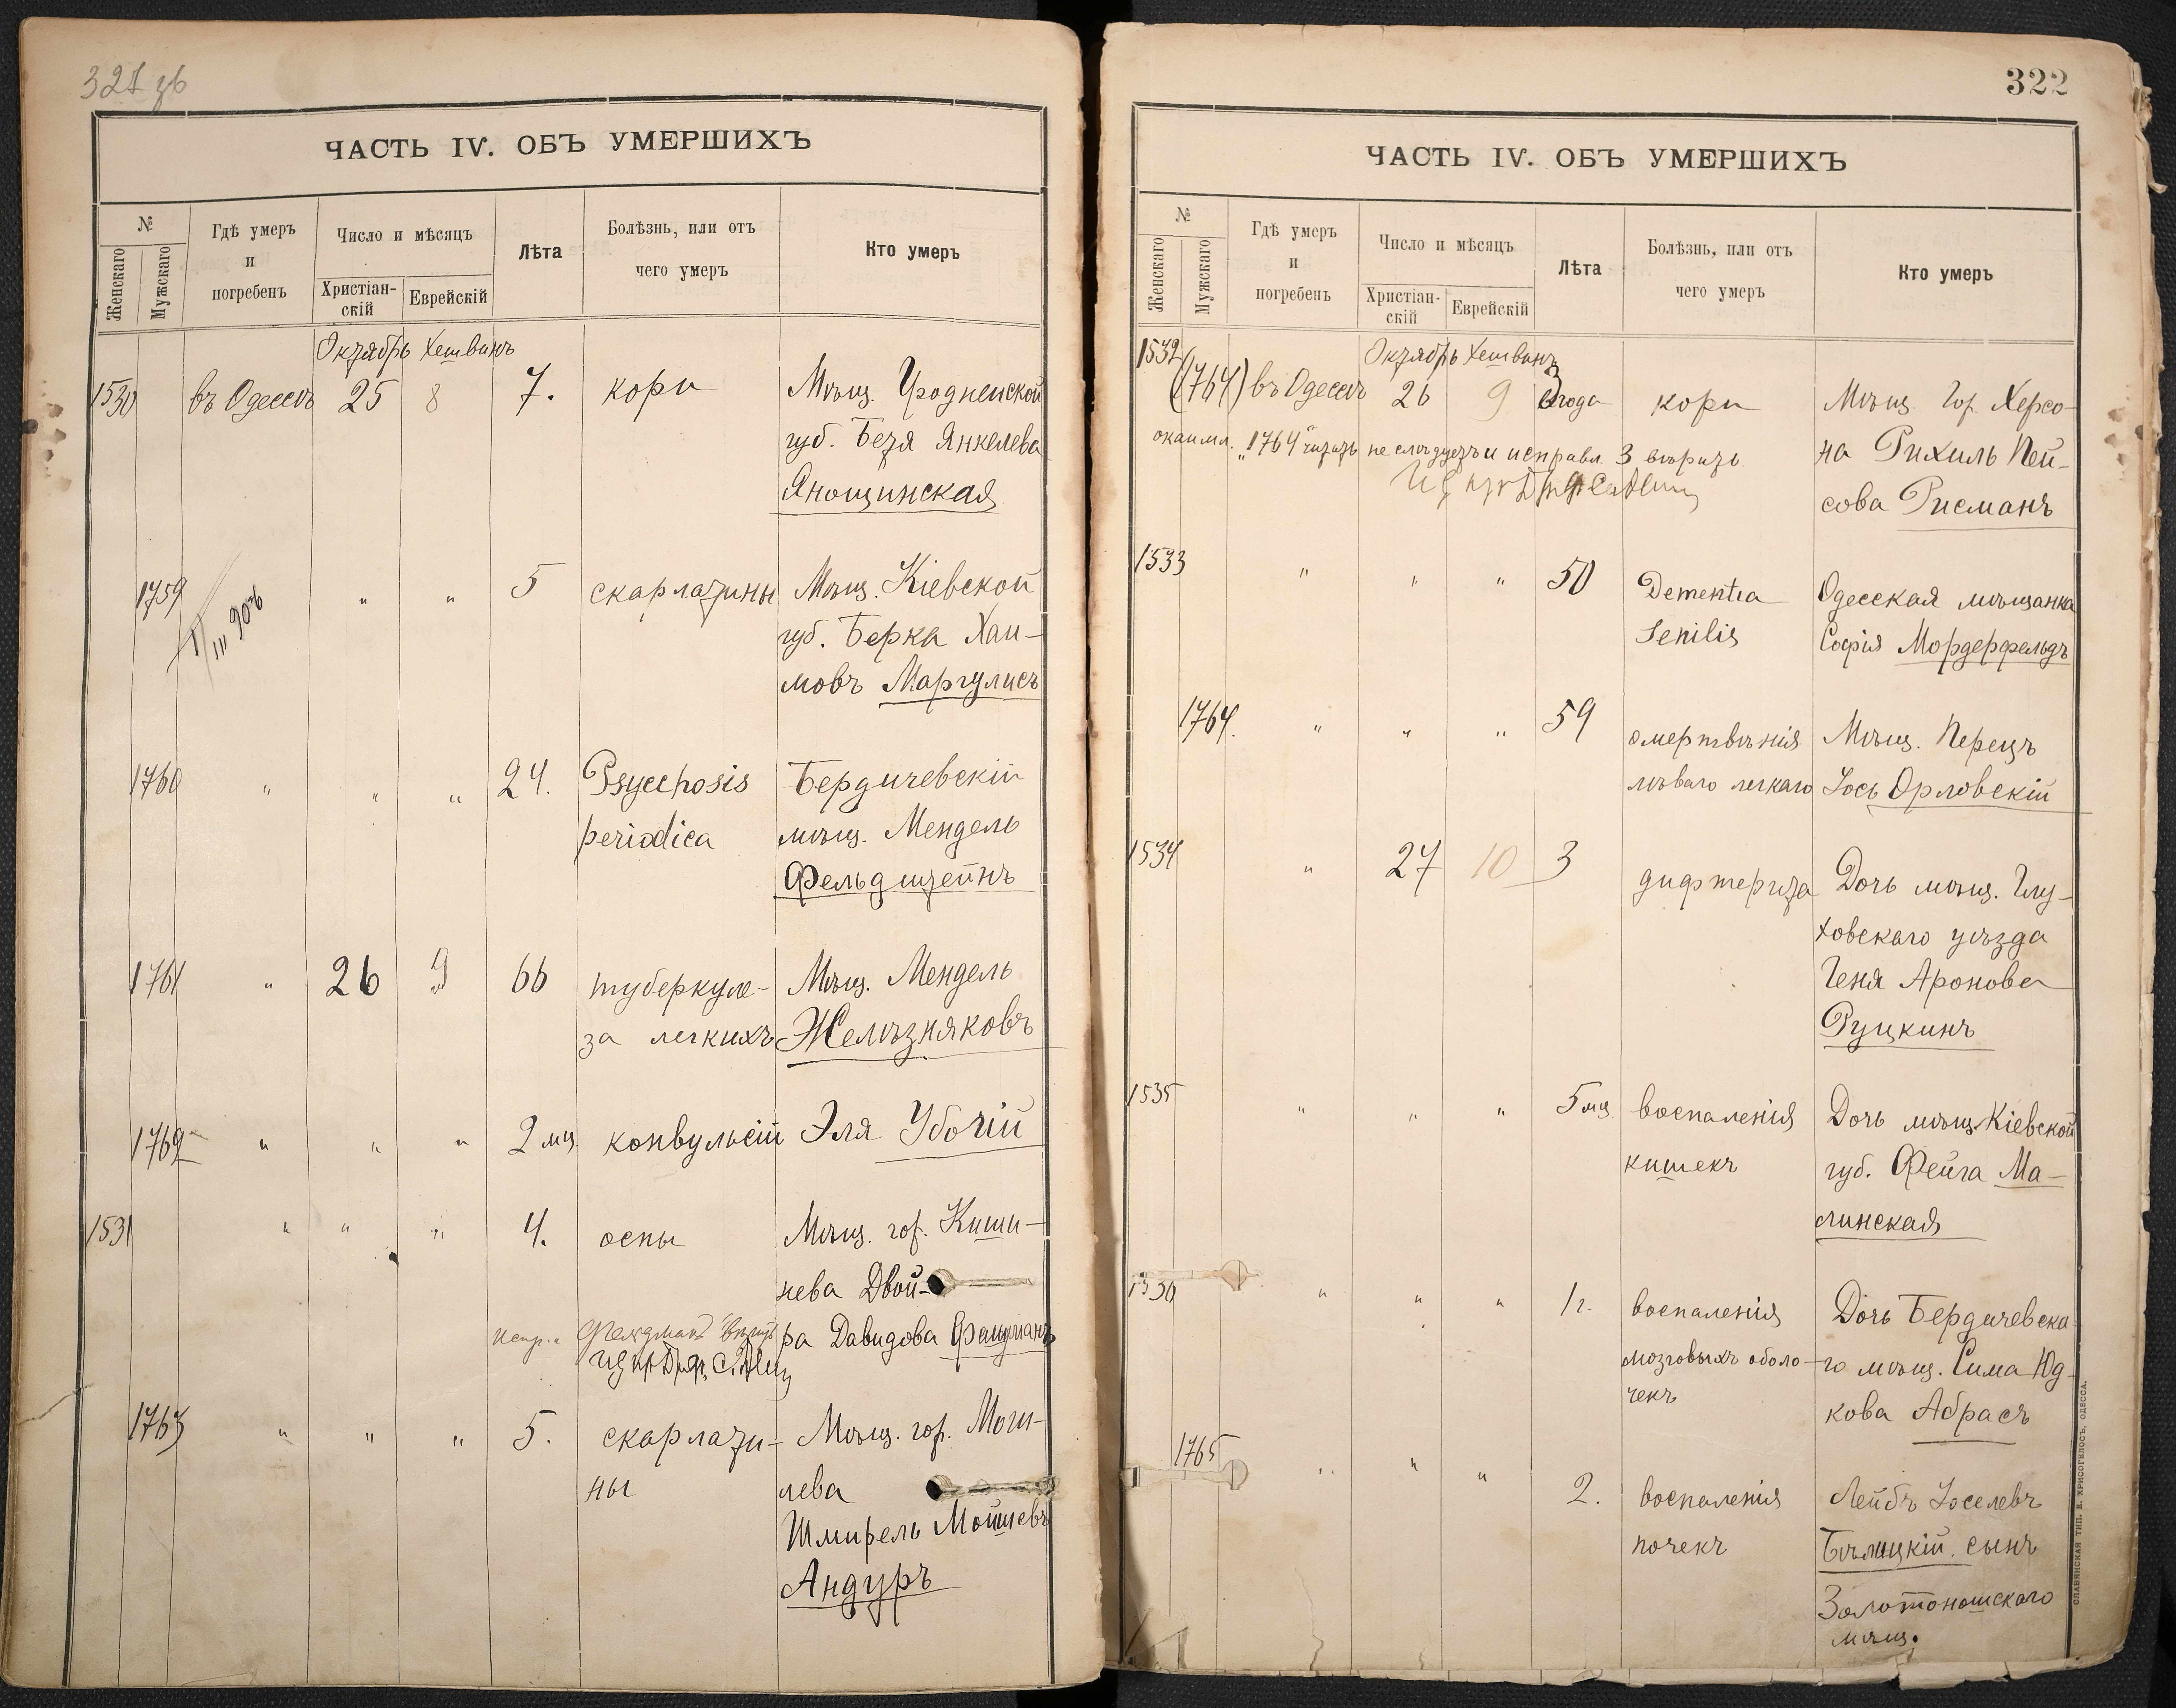 321 зб
ЧАСТЬ IV. ОБЪ УМЕРШИХЪ
№
Женскаго
Мужскаго
Гдѣ умеръ
и
погребенъ
Число и мѣсяцъ
Христіан-
скій
Еврейскій
Лѣта
Болѣзнь, или отъ
чего умеръ
Кто умеръ
Октябрь Хешванъ
1530 въ Одессѣ 25 8 7. кори Мѣщ. Гродненской
губ. Бетя Янкелева
Яношинская
1759 " " 5 скарлатины Мѣщ. Кіевской
губ. Берка Хаи-
мовъ Маргулисъ
1760 " " " 24. Psychosis Бердичевскій
periodica мѣщ. Мендель
Фельдштейнъ
1761 " 26 9 66 туберкуле- Мѣщ. Мендель
за легкихъ Желѣзняковъ
1762 " " " 2 мц конвульсій Эля Убогій
1531 " " " 4. оспы Мѣщ. гор. Киши-
нева Двой-
ра Давидова
1763 " " " 5. скарлати- Мѣщ. гор. Моги-
ны лева
Шмирель Мойшевъ
Андуръ
322
ЧАСТЬ IV. ОБЪ УМЕРШИХЪ
№
Женскаго
Мужскаго
Гдѣ умеръ
и
погребенъ
Число и мѣсяцъ
Христіан-
скій
Еврейскій
Лѣта
Болѣзнь, или отъ
чего умеръ
Кто умеръ
Октябрь Хешванъ
1532 (1764) въ Одессѣ 26 9 3 года кори Мѣщ. Гор. Херсо-
"1764" читать не слѣдуетъ и исправл. 3 вѣрить
на Рихиль Пей-
сова Рисманъ
1533 " " " 50 Dementia Одесская мѣщанка
Senilis Софія Мордерфельдъ
1764. " " " 59 омертвѣнія Мѣщ. Перецъ
лѣваго легкаго Іось Орловскій
1534 " 27 10 3 дифтерита Дочь мѣщ. Глу-
ховскаго уѣзда
Геня Аронова
Руцкинъ
1535 " " " 5 мц. воспаленія Дочь мѣщ. Кіевской
кишекъ губ. Фейга Ма-
линская
1536 " " " 1 г. воспаленія Дочь Бердичевска-
мозговыхъ оболо- го мѣщ. Сима Юд-
чекъ кова Абрасъ
1765 " " " 2. воспаленія Лейбъ Іоселевъ
почекъ Бѣлицкій сынъ
Золотоношскаго
мѣщ.
СЛАВЯНСКАЯ ТИП. Е. ХРИСОГЕЛОСЪ, ОДЕССА.